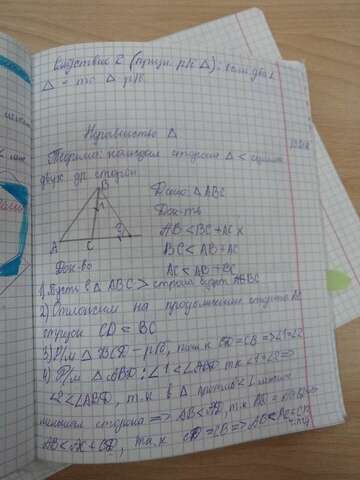 Следствие 2 (призн. р/б △): если два ∠
△ - то △ р/б.
Неравенство △
Теорема: каждая сторона △ < суммы
двух др. сторон
B
1
2
A
C
Дано: △ABC
Док-ть
AB < BC + AC
BC < AB + AC
AC < AB + BC
Док-во
1) Пусть в △ABC > сторона будет
2) Отложим на продолжение стороны AC
CD = BC
3) Р/м △BCD - р/б, так к CD = CB => ∠1=∠2
4) Р/м △ABD: ∠1 < ∠ABD т.к ∠1=∠2 =>
∠2 < ∠ABD, т.к в △ против
сторона => AB < AD, т.к AD =
AB < AC + CD, т.к. CD = CB => AB < AC + CB
ч.т.д